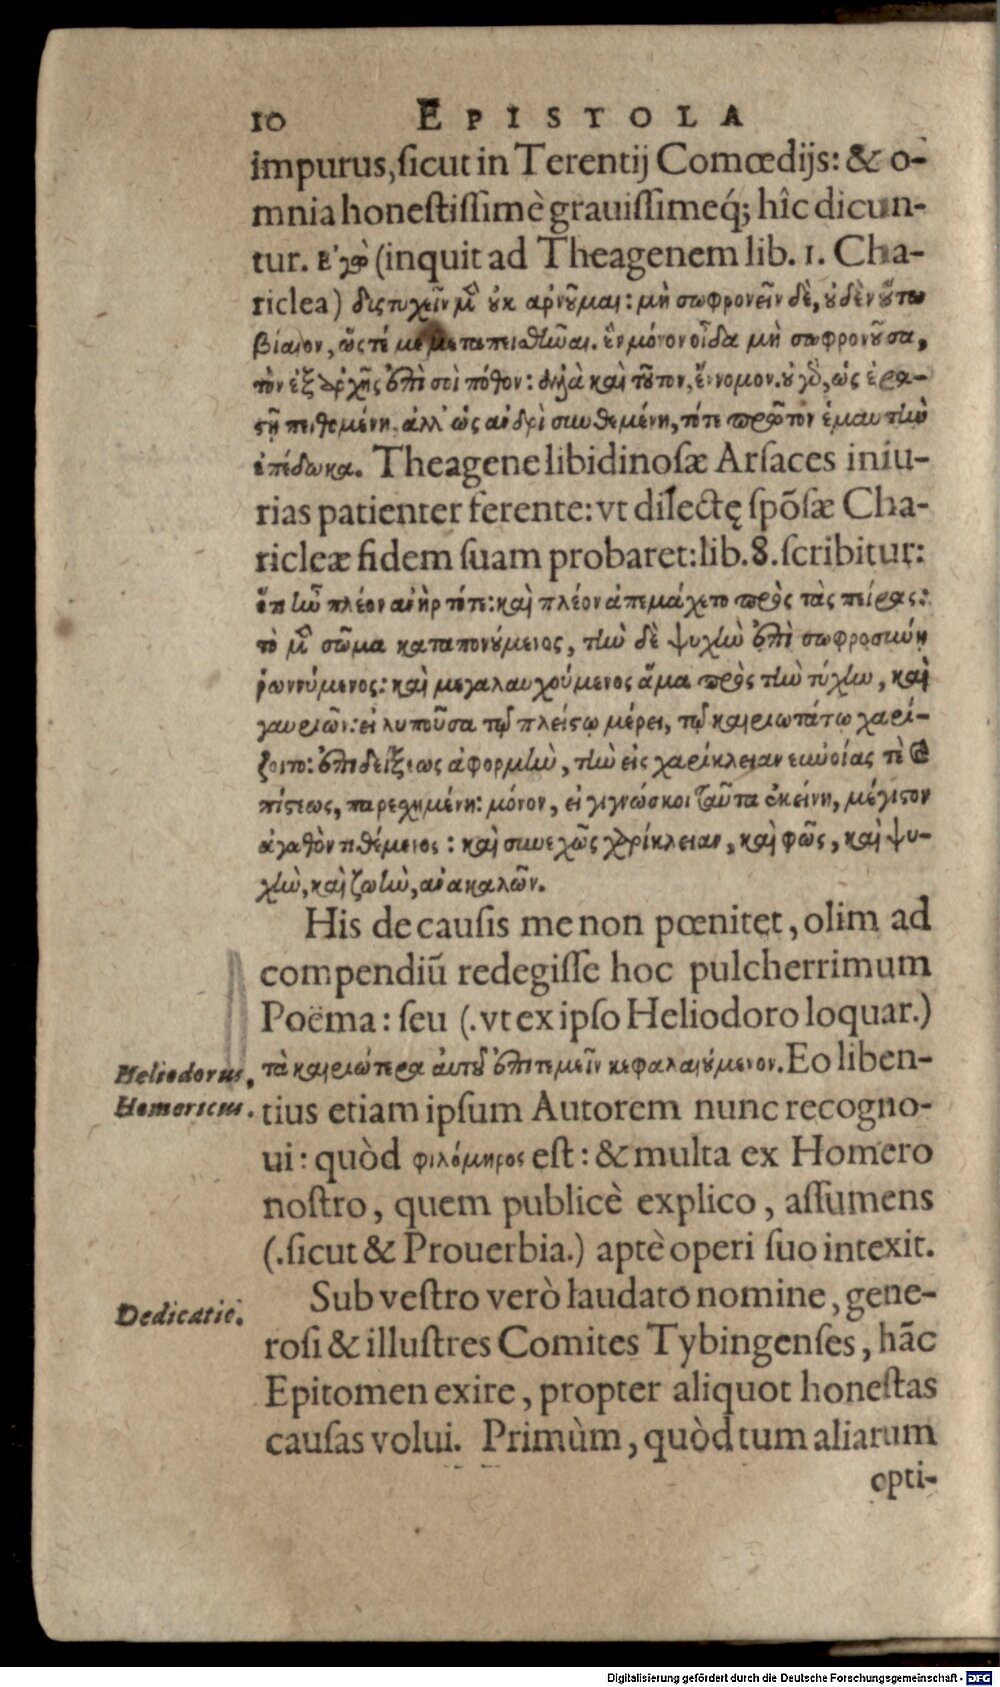 10 EPISTOLA
impurus, ſicut in Terentij Comœdijs: & o-
mnia honeſtiſſimè grauiſſimeq́; hîc dicun-
tur. ἐγὼ (inquit ad Theagenem lib. 1. Cha-
riclea) δυςτυχεῖν μὲν οὐκ ἀρνοῦμαι: μὴ σωφρονεῖν δὲ, οὐδὲν οὕτω
βίαιον, ὥςτέ με μεταπειθῶναι. ἓν μόνον οἶδα μὴ σωφρονοῦσα,
τὸν ἐξ ἀρχῆς ἐπὶ σοὶ πόθον: ἀλλὰ καὶ τοῦτον, ἔννομον. οὐ γὰρ, ὡς ἐρα-
ςῇ πειθομένη. ἀλλ' ὡς ἀνδρὶ συνθεμένη, τότε πρῶτον ἐμαυτὴν
ἐπέδωκα. Theagene libidinoſæ Arſaces iniu-
rias patienter ferente: vt dilectę ſpõſæ Cha-
ricleæ fidem ſuam probaret: lib. 8. ſcribitur:
ὅπ ἦν πλέον ἀνὴρ τότε: καὶ πλέον ἀπεμάχετο πρὸς τὰς πείρας:
τὸ μὲν σῶμα καταπονούμενος, τὴν δὲ ψυχὴν ἐπὶ σωφροσύνῃ
ῥωννύμενος: καὶ μεγαλαυχούμενος ἅμα πρὸς τὴν τύχην, καὶ
γαυριῶν: εἰ λυποῦσα τῷ πλείςῳ μέρει, τῷ καιριωτάτῳ χαρί-
ζοιτο: ἐπιδείξεως ἀφορμὴν, τὴν εἰς χαρίκλειαν εὐνοίας τὲ καὶ
πίςεως, παρεχημένη: μόνον, εἰ γιγνώσκοι ταῦτα ἐκείνη, μέγιςον
ἀγαθὸν τιθέμενος: καὶ συνεχῶς χαρίκλειαν, καὶ φῶς, καὶ ψυ-
χὴν, καὶ ζωὴν, ἀνακαλῶν.
His de cauſis me non pœnitet, olim ad
compendiũ redegiſſe hoc pulcherrimum
Poëma: ſeu (.vt ex ipſo Heliodoro loquar.)
Heliodorus, τὰ καιριώτερα αὐτοῦ ἐπιτεμεῖν κεφαλαιούμενον. Eo liben-
Homericus. tius etiam ipſum Autorem nunc recogno-
ui: quòd φιλόμηρος eſt: & multa ex Homero
noſtro, quem publicè explico, aſſumens
(.ſicut & Prouerbia.) aptè operi ſuo intexit.
Dedicatio. Sub veſtro verò laudato nomine, gene-
roſi & illuſtres Comites Tybingenſes, hãc
Epitomen exire, propter aliquot honeſtas
cauſas volui. Primùm, quòd tum aliarum
opti-
Digitalisierung gefördert durch die Deutsche Forschungsgemeinschaft - DFG